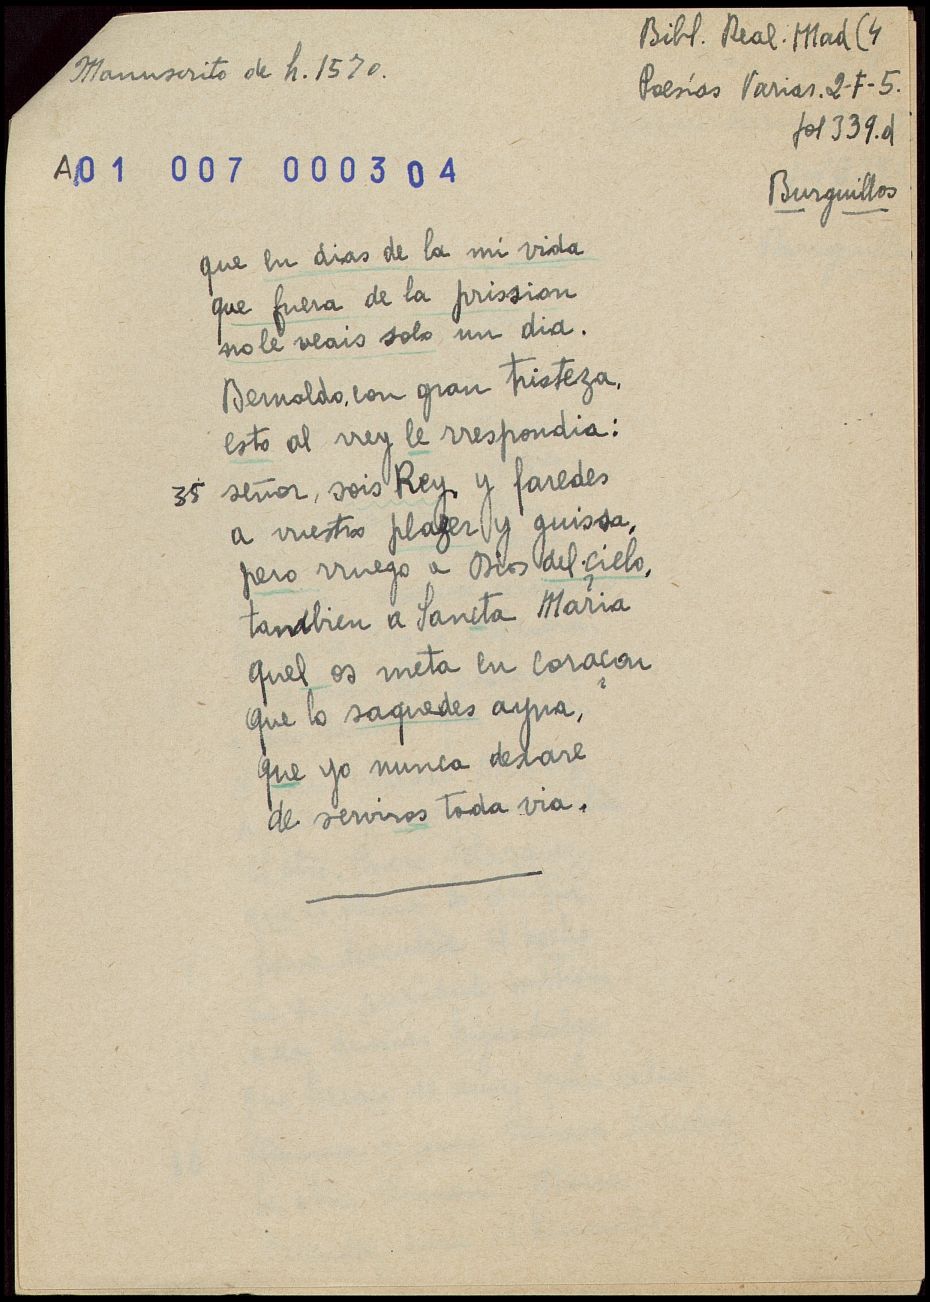 Manuscrito de h. 1570.
Bibl. Real. Mad (4
Poesías Varias. 2-F-5.
fol 339.d
A01 007 000304
Burguillos
que en dias de la mi vida
que fuera de la prission
nole veais solo un dia.
Bernoldo, con gran tristeza,
esto al rrey le rrespondia:
35 señor, sois Rey, y faredes
a vuestro plazer y guissa,
pero rruego a Dios del cielo,
tanbien a Sancta Maria
quel os meta en coraçon
que lo saquedes ayna,
que yo nunca dexare
de serviros toda via.